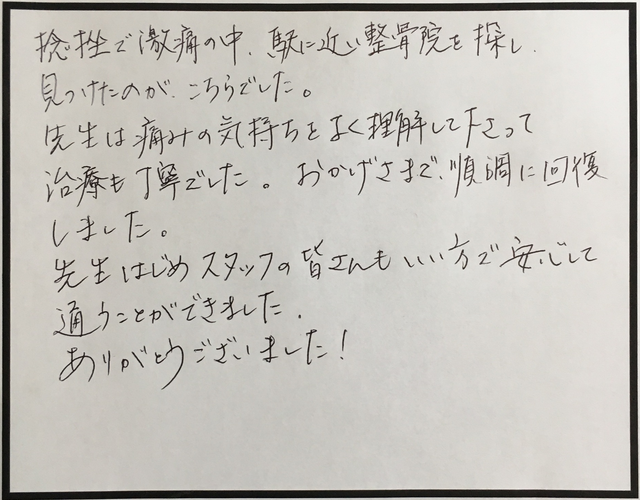 捻挫で激痛の中、駅に近い整骨院を探し、
見つけたのが、こちらでした。
先生は痛みの気持ちをよく理解して下さって
治療も丁寧でした。おかげさまで、順調に回復
しました。
先生はじめスタッフの皆さんもいい方で安心して
通うことができました。
ありがとうございました！